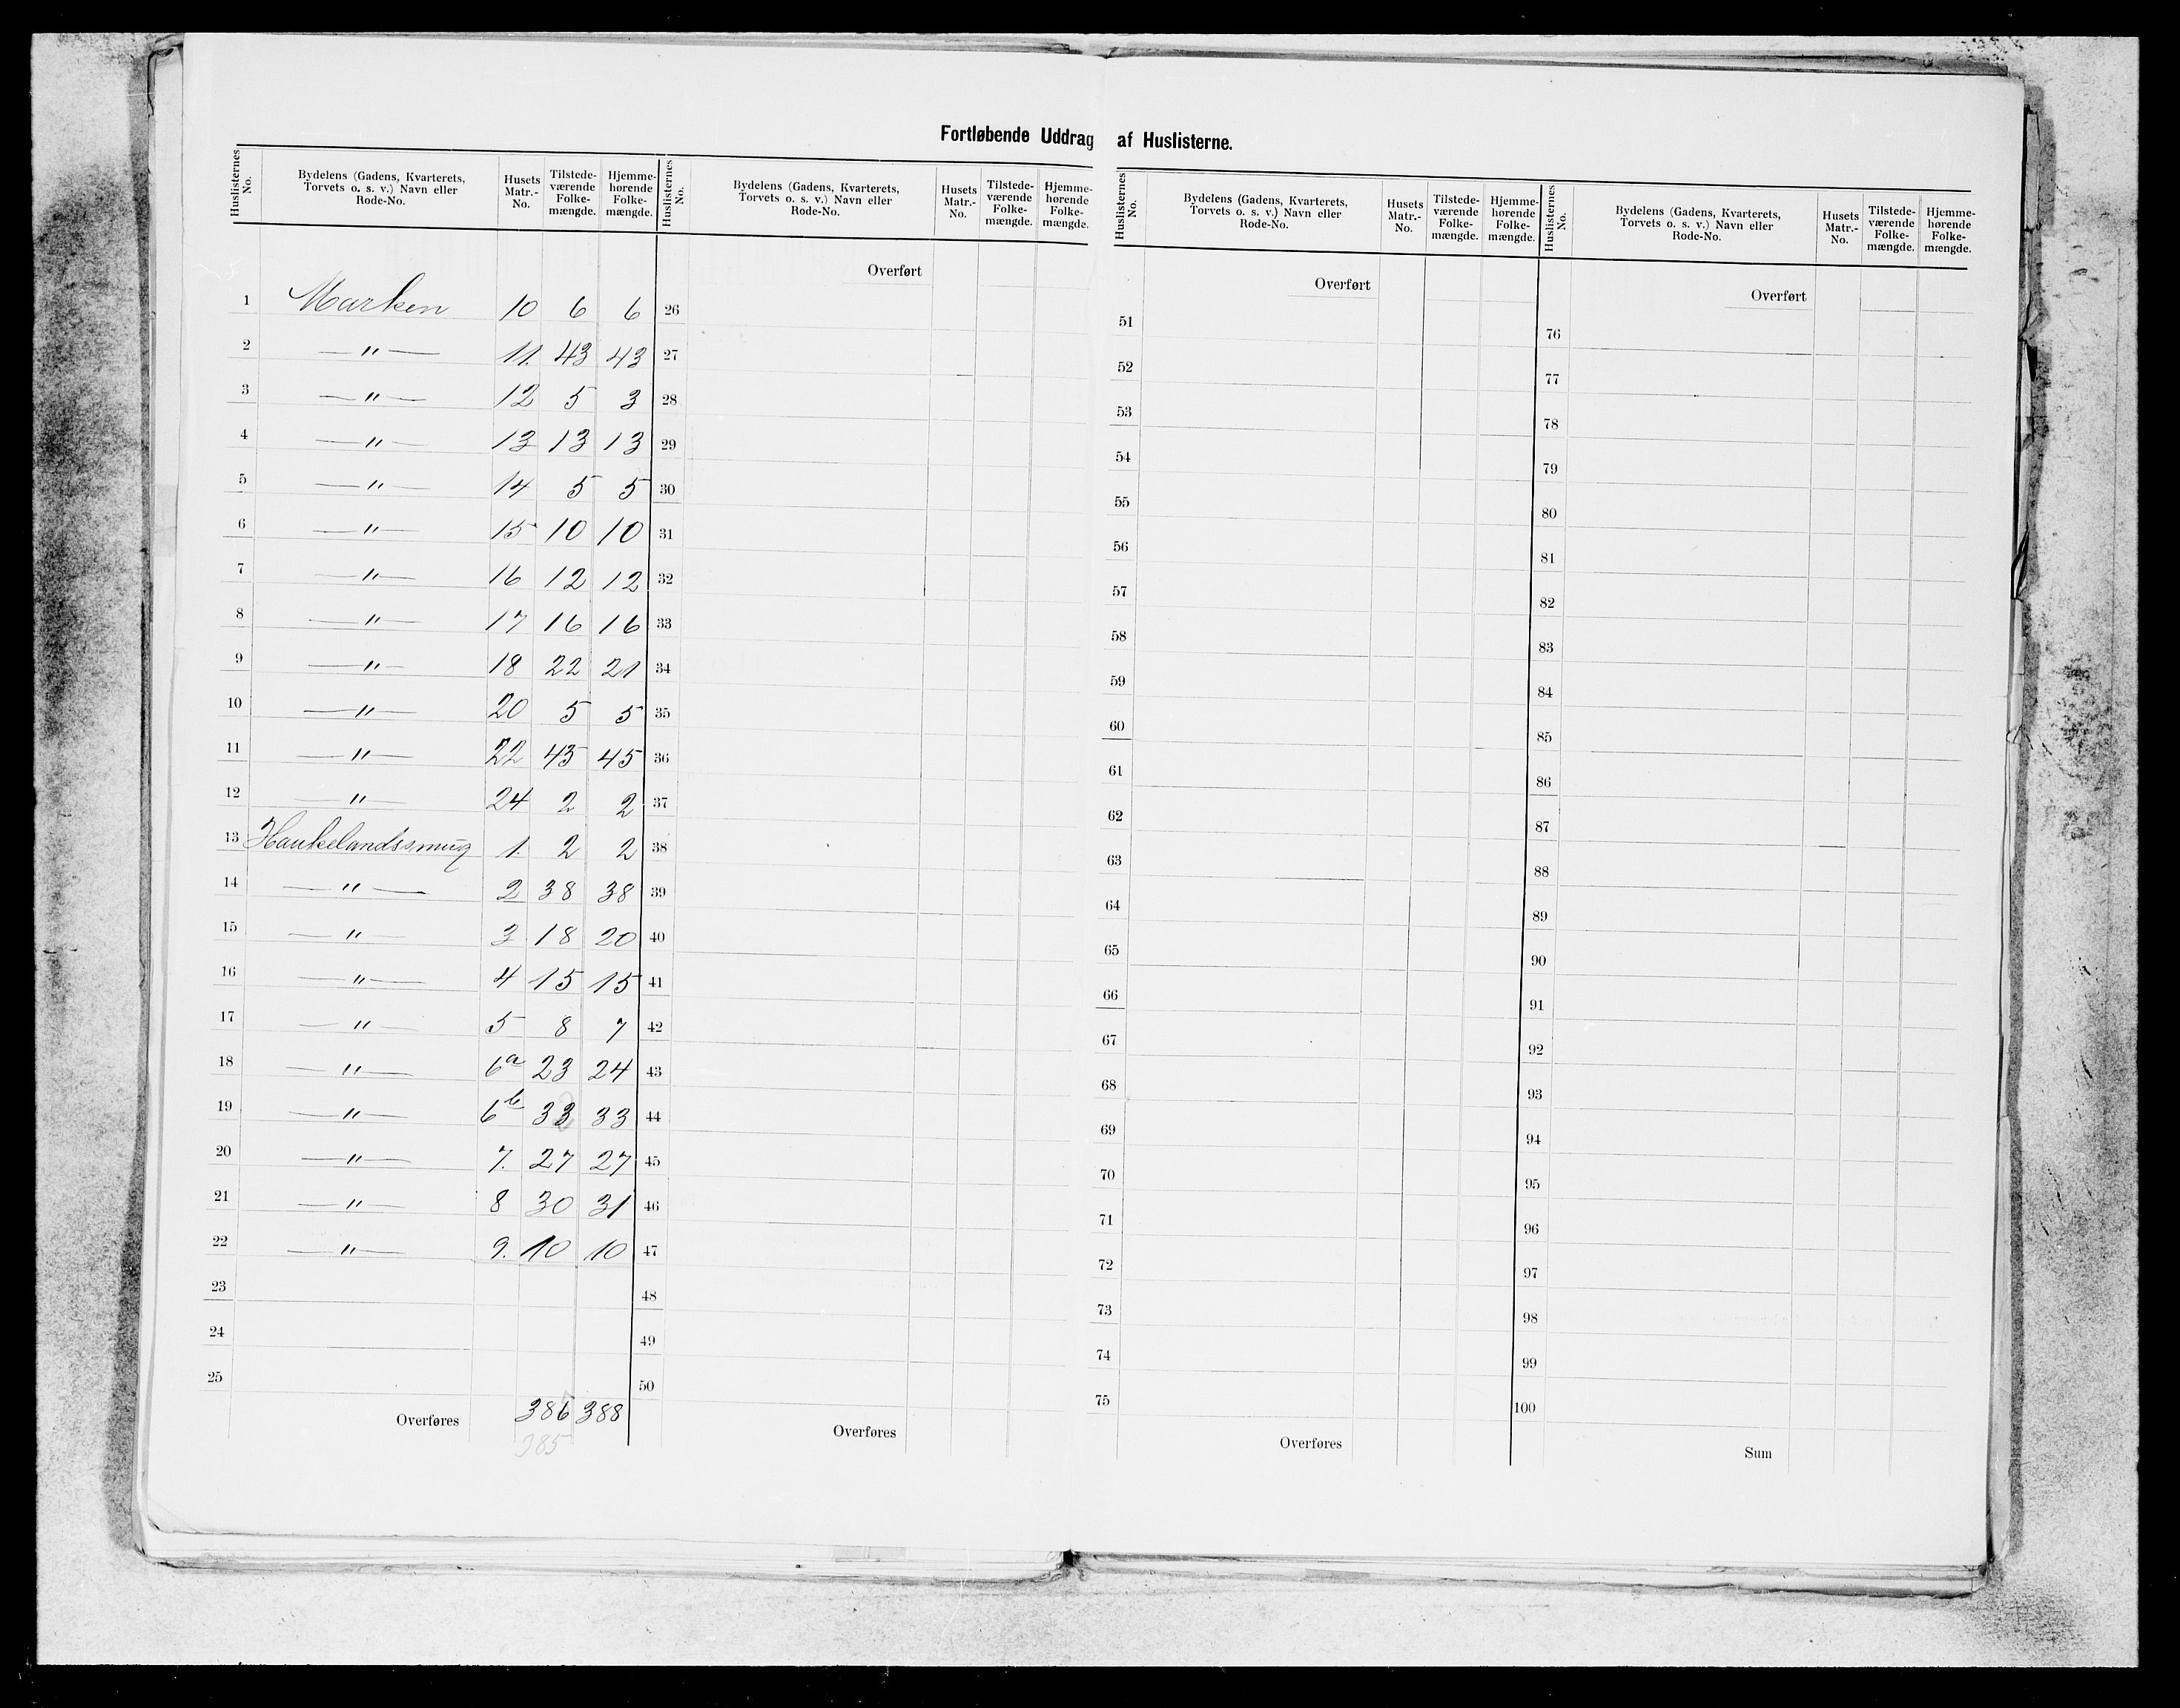 Fortløbende Uddrag af Huslisterne.
Huslisternes No. | Bydelens (Gadens, Kvarterets, Torvets o. s. v.) Navn eller Rode-No. | Husets Matr.-No. | Tilstede-værende Folke-mængde. | Hjemme-hørende Folke-mængde.
1 Marken 10 6 6
2 —"— 11. 43 43
3 —"— 12 5 3
4 —"— 13 13 13
5 —"— 14 5 5
6 —"— 15 10 10
7 —"— 16 12 12
8 —"— 17 16 16
9 —"— 18 22 21
10 —"— 20 5 5
11 —"— 22 45 45
12 —"— 24 2 2
13 Haukelandssmug 1. 2 2
14 —"— 2 38 38
15 —"— 3 18 20
16 —"— 4 15 15
17 —"— 5 8 7
18 —"— 6a 23 24
19 —"— 6b 33 33
20 —"— 7. 27 27
21 —"— 8 30 31
22 —"— 9. 10 10
23
24
25
Overføres 386 388
385
Huslisternes No. | Bydelens (Gadens, Kvarterets, Torvets o. s. v.) Navn eller Rode-No. | Husets Matr.-No. | Tilstede-værende Folke-mængde. | Hjemme-hørende Folke-mængde.
Overført
26
27
28
29
30
31
32
33
34
35
36
37
38
39
40
41
42
43
44
45
46
47
48
49
50
Overføres
Huslisternes No. | Bydelens (Gadens, Kvarterets, Torvets o. s. v.) Navn eller Rode-No. | Husets Matr.-No. | Tilstede-værende Folke-mængde. | Hjemme-hørende Folke-mængde.
Overført
51
52
53
54
55
56
57
58
59
60
61
62
63
64
65
66
67
68
69
70
71
72
73
74
75
Overføres
Huslisternes No. | Bydelens (Gadens, Kvarterets, Torvets o. s. v.) Navn eller Rode-No. | Husets Matr.-No. | Tilstede-værende Folke-mængde. | Hjemme-hørende Folke-mængde.
Overført
76
77
78
79
80
81
82
83
84
85
86
87
88
89
90
91
92
93
94
95
96
97
98
99
100
Sum